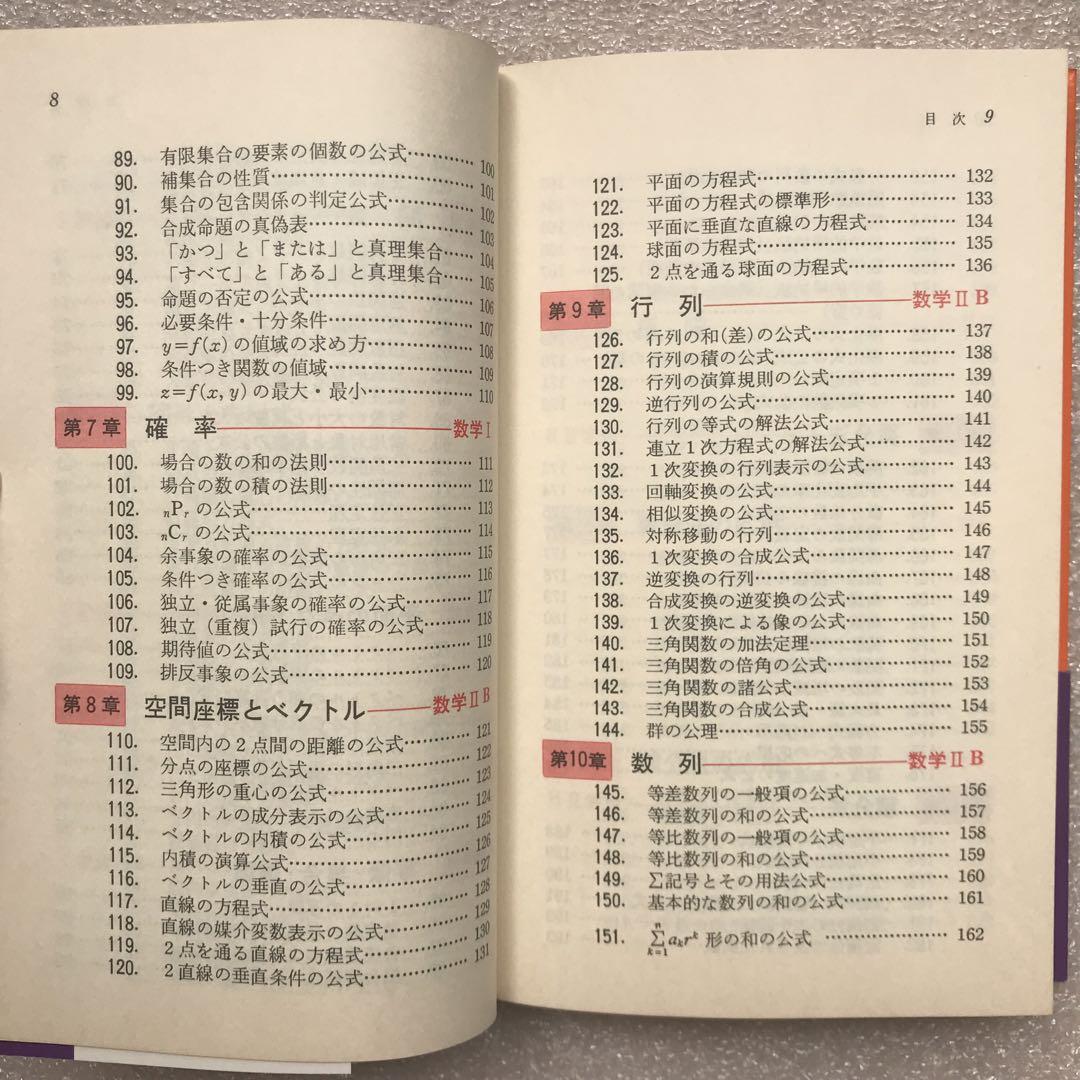 8
89. 有限集合の要素の個数の公式………… 100
90. 補集合の性質………… 101
91. 集合の包含関係の判定公式………… 102
92. 合成命題の真偽表………… 103
93. 「かつ」と「または」と真理集合………… 104
94. 「すべて」と「ある」と真理集合………… 105
95. 命題の否定の公式………… 106
96. 必要条件・十分条件………… 107
97. y=f(x) の値域の求め方………… 108
98. 条件つき関数の値域………… 109
99. z=f(x, y) の最大・最小………… 110
第7章 確 率 数学Ⅰ
100. 場合の数の和の法則………… 111
101. 場合の数の積の法則………… 112
102. nPr の公式………… 113
103. nCr の公式………… 114
104. 余事象の確率の公式………… 115
105. 条件つき確率の公式………… 116
106. 独立・従属事象の確率の公式………… 117
107. 独立（重複）試行の確率の公式………… 118
108. 期待値の公式………… 119
109. 排反事象の公式………… 120
第8章 空間座標とベクトル 数学ⅡB
110. 空間内の2点間の距離の公式………… 121
111. 分点の座標の公式………… 122
112. 三角形の重心の公式………… 123
113. ベクトルの成分表示の公式………… 124
114. ベクトルの内積の公式………… 125
115. 内積の演算公式………… 126
116. ベクトルの垂直の公式………… 127
117. 直線の方程式………… 128
118. 直線の媒介変数表示の公式………… 129
119. 2点を通る直線の方程式………… 130
120. 2直線の垂直条件の公式………… 131
目 次 9
121. 平面の方程式………… 132
122. 平面の方程式の標準形………… 133
123. 平面に垂直な直線の方程式………… 134
124. 球面の方程式………… 135
125. 2点を通る球面の方程式………… 136
第9章 行 列 数学ⅡB
126. 行列の和(差)の公式………… 137
127. 行列の積の公式………… 138
128. 行列の演算規則の公式………… 139
129. 逆行列の公式………… 140
130. 行列の等式の解法公式………… 141
131. 連立1次方程式の解法公式………… 142
132. 1次変換の行列表示の公式………… 143
133. 回軸変換の公式………… 144
134. 相似変換の公式………… 145
135. 対称移動の行列………… 146
136. 1次変換の合成公式………… 147
137. 逆変換の行列………… 148
138. 合成変換の逆変換の公式………… 149
139. 1次変換による像の公式………… 150
140. 三角関数の加法定理………… 151
141. 三角関数の倍角の公式………… 152
142. 三角関数の諸公式………… 153
143. 三角関数の合成公式………… 154
144. 群の公理………… 155
第10章 数 列 数学ⅡB
145. 等差数列の一般項の公式………… 156
146. 等差数列の和の公式………… 157
147. 等比数列の一般項の公式………… 158
148. 等比数列の和の公式………… 159
149. Σ記号とその用法公式………… 160
150. 基本的な数列の和の公式………… 161
151. Σ[k=1→n] aₖrᵏ 形の和の公式………… 162